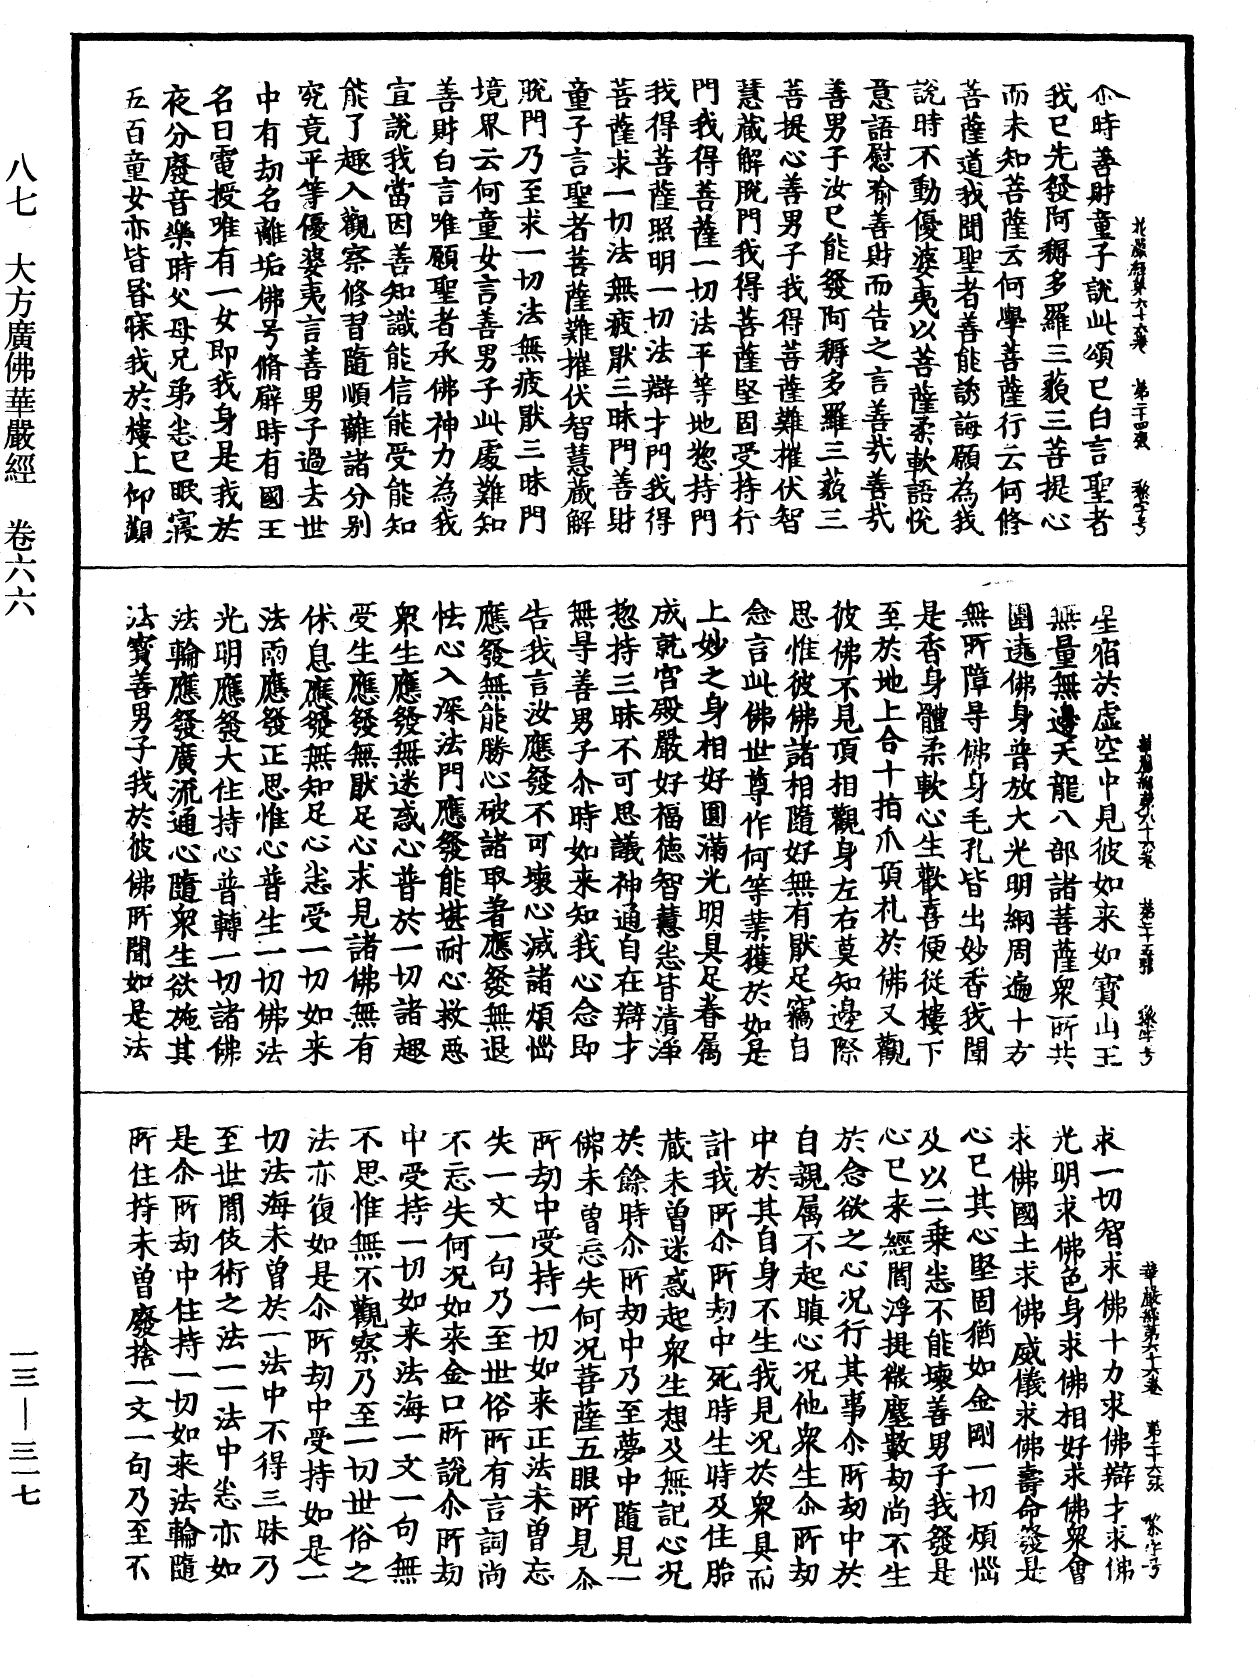 尒時善財童子說此頌已白言聖者
我已先發阿耨多羅三藐三菩提心
而未知菩薩云何學菩薩行云何修
菩薩道我聞聖者善能誘誨願為我
說時不動優婆夷以菩薩柔軟語悅
意語慰喻善財而告之言善哉善哉
善男子汝已能發阿耨多羅三藐三
菩提心善男子我得菩薩難摧伏智
慧藏解脫門我得菩薩堅固受持行
門我得菩薩一切法平等地惣持門
我得菩薩照明一切法辯才門我得
菩薩求一切法無疲猒三昧門善財
童子言聖者菩薩難摧伏智慧藏解
脫門乃至求一切法無疲猒三昧門
境界云何童女言善男子此處難知
善財白言唯願聖者承佛神力為我
宣說我當因善知識能信能受能知
能了趣入觀察修習隨順離諸分別
究竟平等優婆夷言善男子過去世
中有劫名離垢佛号脩臂時有國王
名曰電授唯有一女即我身是我於
夜分廢音樂時父母兄弟悉已眠寢
五百童女亦皆昏寐我於樓上仰觀
星宿於虛空中見彼如来如寶山王
無量無邊天龍八部諸菩薩衆所共
圍遶佛身普放大光明網周遍十方
無所障㝵佛身毛孔皆出妙香我聞
是香身體柔軟心生歡喜便從樓下
至於地上合十指爪頂礼於佛又觀
彼佛不見頂相觀身左右莫知邊際
思惟彼佛諸相隨好無有猒足竊自
念言此佛世尊作何等業獲於如是
上妙之身相好圓滿光明具足眷属
成就宫殿嚴好福德智慧悉皆清淨
惣持三昧不可思議神通自在辯才
無㝵善男子尒時如来知我心念即
告我言汝應發不可壞心滅諸煩惱
應發無能勝心破諸取著應發無退
怯心入深法門應發能堪耐心救惡
衆生應發無迷惑心普於一切諸趣
受生應發無猒足心求見諸佛無有
休息應發無知足心悉受一切如来
法雨應發正思惟心普生一切佛法
光明應發大住持心普轉一切諸佛
法輪應發廣流通心隨衆生欲施其
法寶善男子我於彼佛所聞如是法
求一切智求佛十力求佛辯才求佛
光明求佛色身求佛相好求佛衆會
求佛國土求佛威儀求佛壽命發是
心已其心堅固猶如金剛一切煩惱
及以二乘悉不能壞善男子我發是
心已来經閻浮提微塵數劫尚不生
於念欲之心况行其事尒所劫中於
自親属不起瞋心况他衆生尒所劫
中於其自身不生我見况於衆具而
計我所尒所劫中死時生時及住胎
藏未曽迷惑起衆生想及無記心况
於餘時尒所劫中乃至夢中隨見一
佛未曽忘失何况菩薩五眼所見尒
所劫中受持一切如来正法未曽忘
失一文一句乃至世俗所有言詞尚
不忘失何况如来金口所說尒所劫
中受持一切如来法海一文一句無
不思惟無不觀察乃至一切世俗之
法亦復如是尒所劫中受持如是一
切法海未曽於一法中不得三昧乃
至世閒伎術之法一一法中悉亦如
是尒所劫中住持一切如来法輪隨
所住持未曽廢捨一文一句乃至不
華嚴經第六十六卷 第二十四張
華嚴經第六十六卷 第二十五張
華嚴經第六十六卷 第二十六張
八七 大方廣佛華嚴經 卷六六
一三—三一七